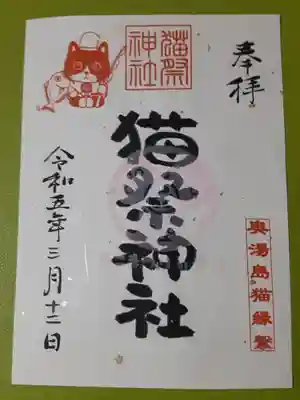 奉拝
猫祭神社
猫祭神社
奥湯島猫縁繋
令和五年三月十二日